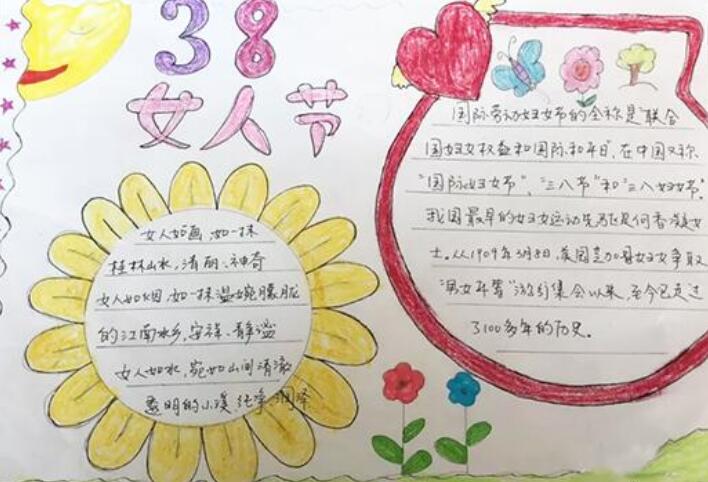 38
女人节
女人如画,如一抹
桂林山水,清丽、神奇
女人如烟,如一抹温婉朦胧
的江南水乡,安祥、静谧
女人如水,宛如山间清澈
透明的小溪,纯净润泽
国际劳动妇女节的全称是"联合
国妇女权益和国际和平日",在中国又称
"国际妇女节"、"三八节"和"三八妇女节"。
我国最早的妇女运动先驱是何香凝女
士。从1909年3月8日,美国芝加哥妇女争取
"男女平等"游行集会以来,至今已走过
了100多年的历史。